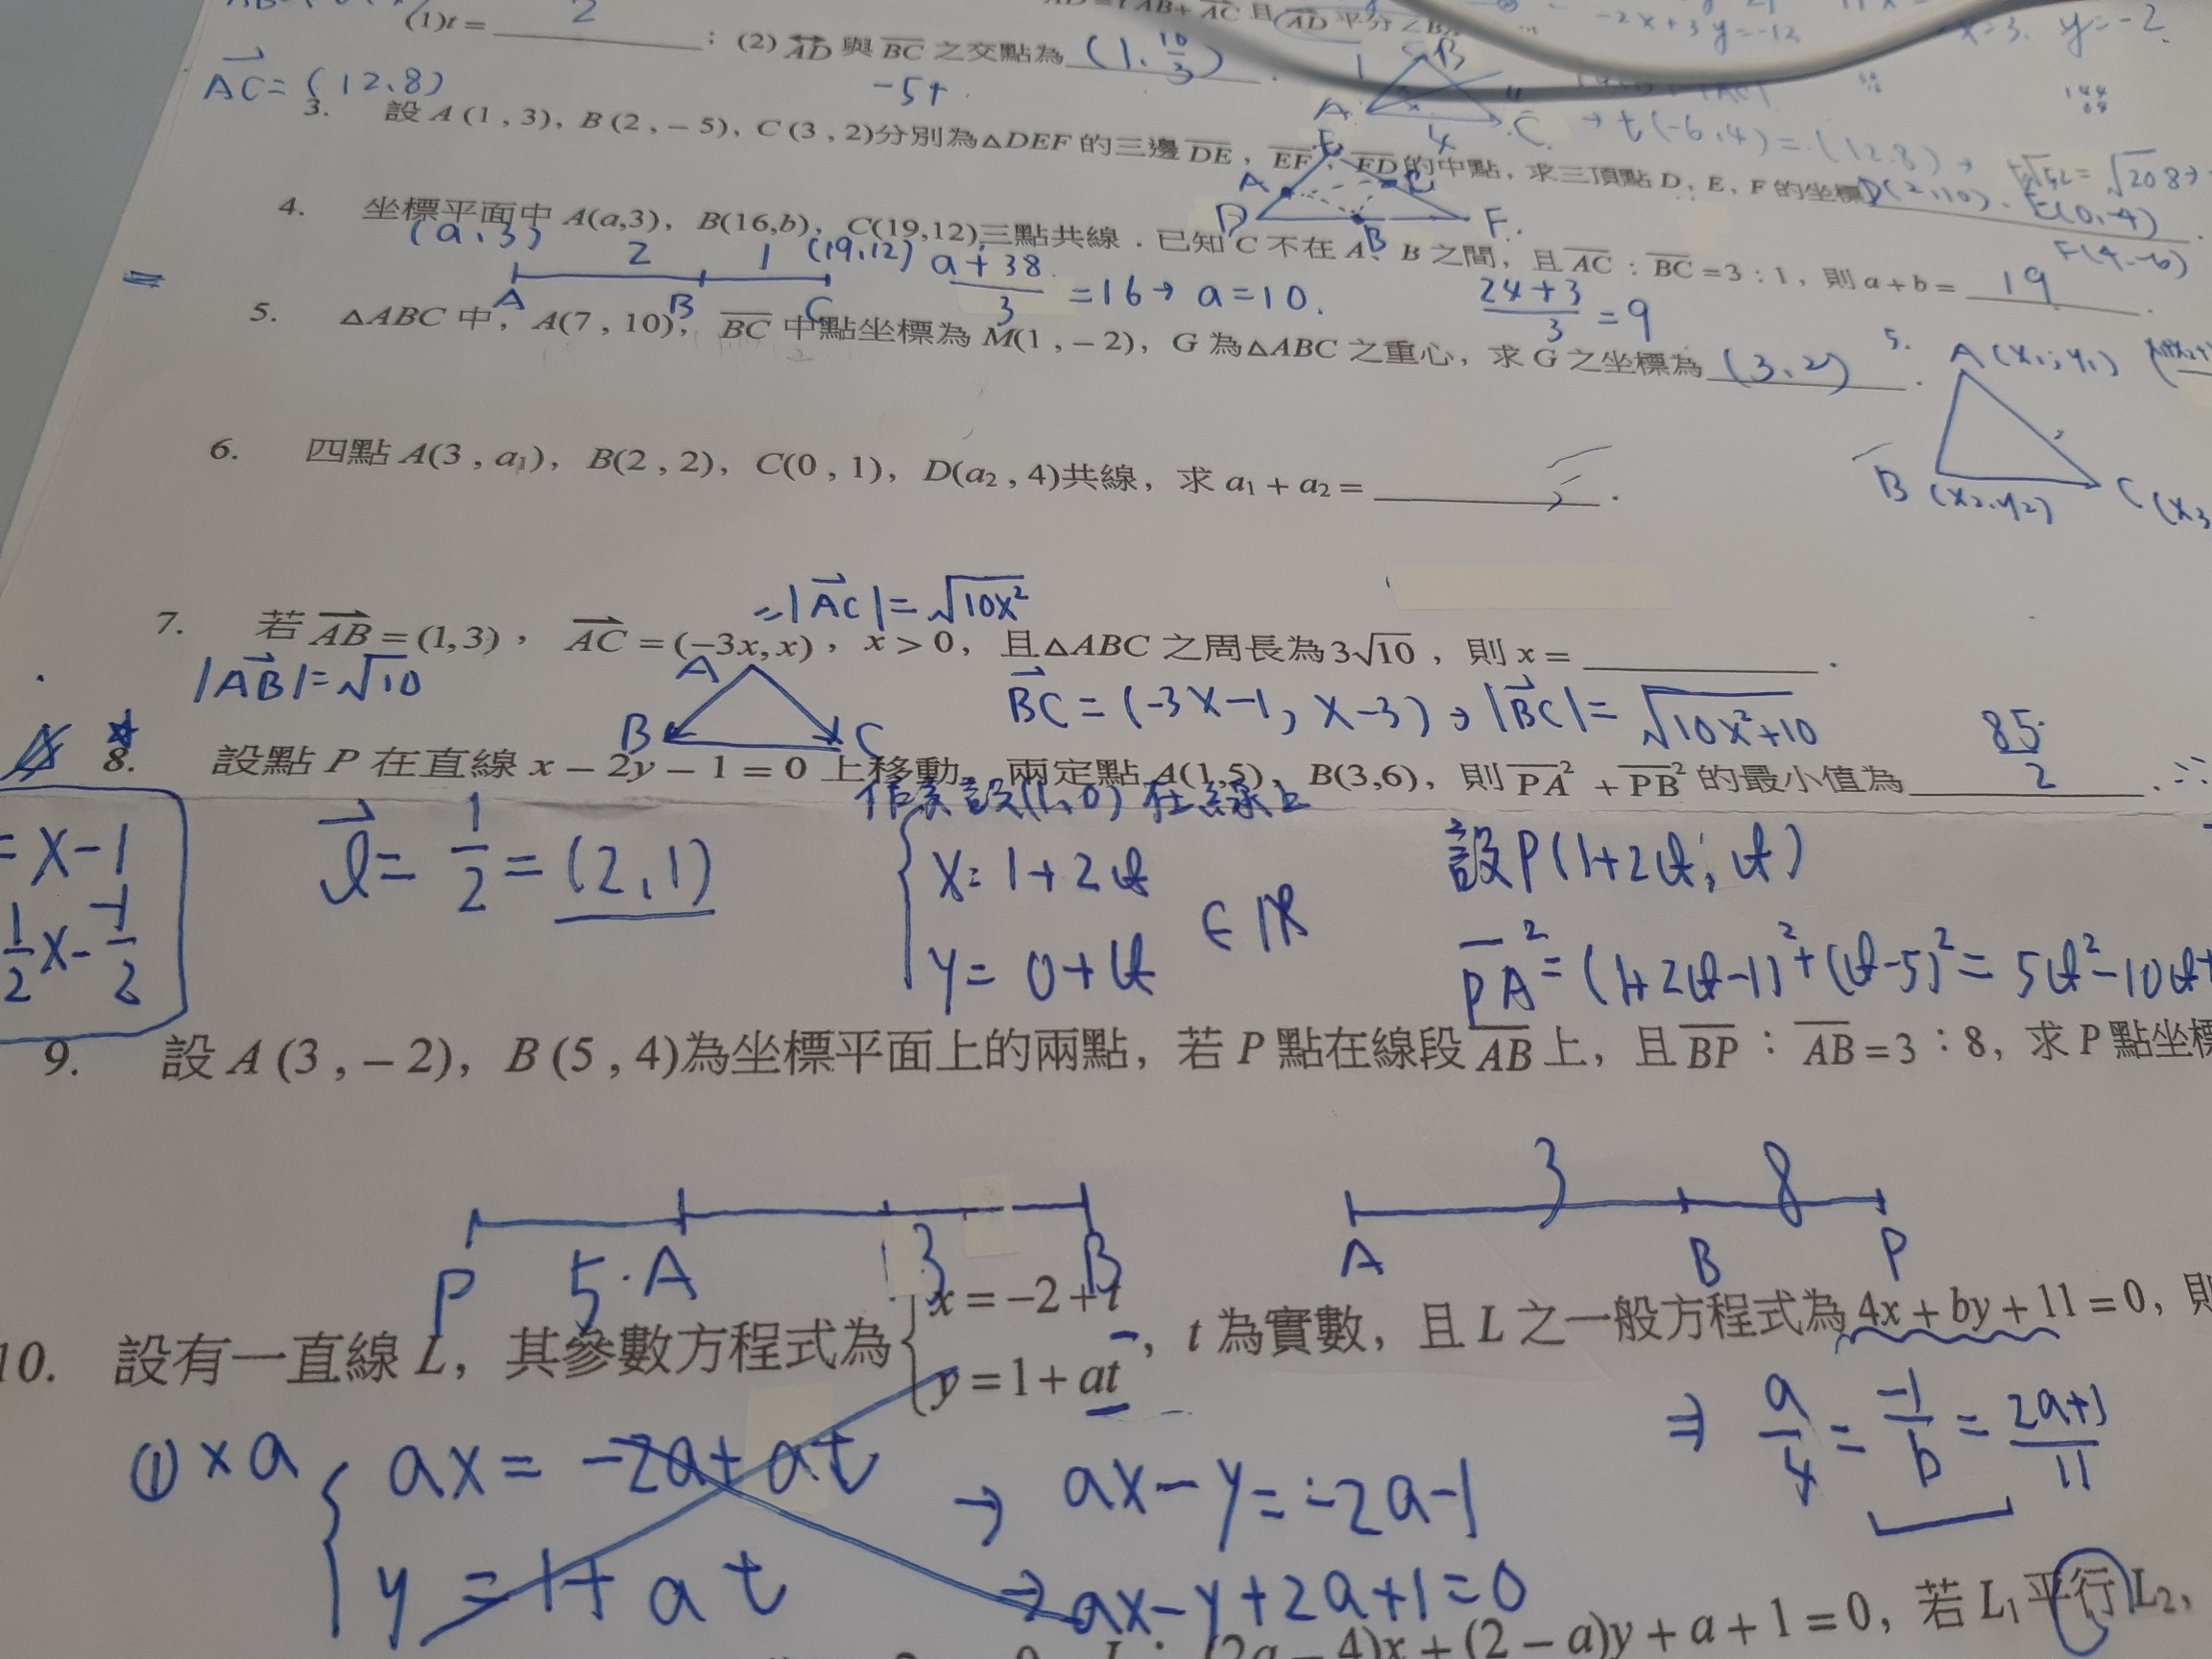 (1)t= 2 ；(2) AD 與 BC 之交點為 (1, 10/3) .
AC = (12,8)
-5+
3. 設 A (1 , 3)，B (2 , – 5)，C (3 , 2)分別為△DEF 的三邊 DE，EF，FD 的中點，求三頂點 D、E、F 的坐標 D(2,10)、E(0,-4)
F(4,-6)
A B C 4
→ t(-6,4) = (12,8) →
-2x+3y=-12
x=3, y=-2
D E F A B C
4. 坐標平面中 A(a,3)，B(16,b)，C(19,12)三點共線．已知 C 不在 A、B 之間，且 AC：BC =3：1，則 a+b = 19 .
(a,3) 2 1 (19,12)
A B C
(a+38)/3 = 16 → a=10.
(24+3)/3 = 9
5. △ABC 中，A(7 , 10)，BC 中點坐標為 M(1 , – 2)，G 為△ABC 之重心，求 G 之坐標為 (3,2) .
5. A (x₁,y₁)
B (x₂,y₂) C (x₃
6. 四點 A(3 , a₁)，B(2 , 2)，C(0 , 1)，D(a₂ , 4)共線，求 a₁ + a₂ = .
⇒|AC| = √10x²
7. 若 AB = (1,3)，AC = (–3x, x)，x > 0，且△ABC 之周長為 3√10，則 x = .
|AB|=√10
A B C
BC = (-3x-1, x-3) → |BC| = √10x²+10
8. 設點 P 在直線 x – 2y – 1 = 0 上移動，兩定點 A(1,5)，B(3,6)，則 PA² + PB² 的最小值為 85/2 .
設(1,0) 在線上
= x-1
1/2 x - 1/2
l = 1/2 = (2,1)
x= 1+2t
y= 0+t
∈ℝ
設P(1+2t, t)
PA² = (1+2t-1)²+(t-5)² = 5t²-10t+
9. 設 A (3 , – 2)，B (5 , 4)為坐標平面上的兩點，若 P 點在線段 AB 上，且 BP：AB = 3：8，求 P 點坐標
P 5 A 3 B
3 8
A B P
10. 設有一直線 L，其參數方程式為 { x = –2 + t
y = 1 + at ，t 為實數，且 L 之一般方程式為 4x + by + 11 = 0，則
⇒ a/4 = -1/b = (2a+1)/11
① × a { ax = -2a+at
y = 1+at
→ ax-y=-2a-1
⇒ ax-y+2a+1=0
(2a – 4)x + (2 – a)y + a + 1 = 0，若 L₁ 平行 L₂，